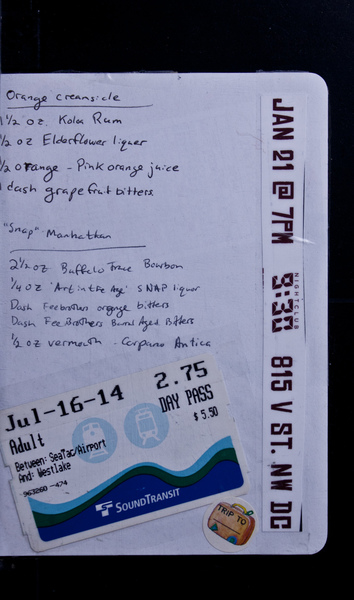 Orange creamsicle
1 1/2 oz. Koloa Rum
1/2 oz Elderflower liquer
1/2 orange - Pink orange juice
1 dash grapefruit bitters
"Snap" Manhattan
2 1/2 oz Buffalo Trace Bourbon
1/4 oz 'Art in the Age' SNAP liquor
Dash Fee brothers orange bitters
Dash Fee Brothers Barrel Aged Bitters
1/2 oz vermouth - Carpano Antica
JAN 21 @ 7PM 9:30 NIGHTCLUB 815 V ST. NW DC
Jul-16-14 2.75
Adult DAY PASS
$ 5.50
Between: SeaTac/Airport
And: Westlake
963260 -474
SOUNDTRANSIT
TRIP TO